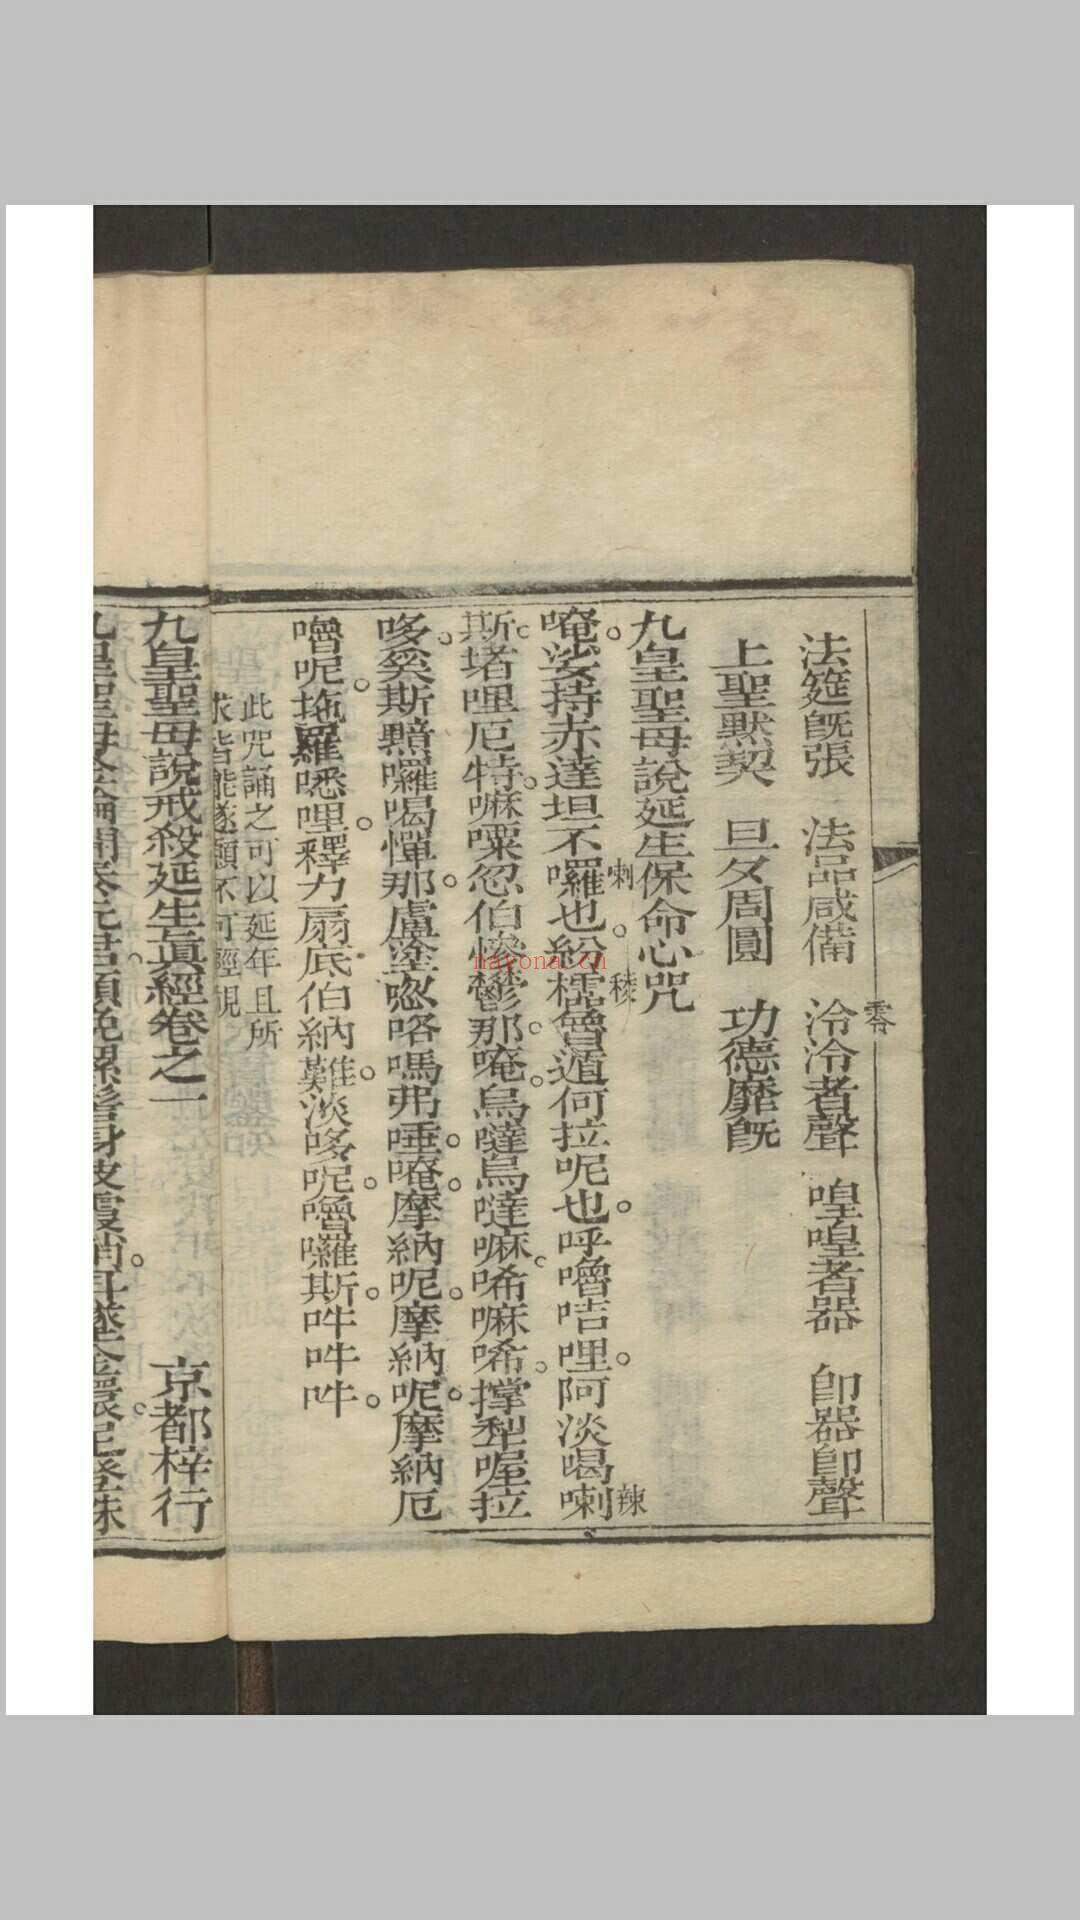 法筵旣張　法品咸備　泠泠者聲　喤喤者器　卽器卽聲
零
上聖默契　旦夕周圓　功德靡旣
九皇聖母說延生保命心咒
唵。娑持赤達坦不囉也。紛檽嚕遁何拉呢也。呼嚕咭哩。阿淡噶喇
喇
稜
辣
斯。堵哩厄特。嘛㗚忽伯慘鬱那。唵。烏噠烏噠嘛。唏嘛唏。撑犁喔拉
哆。奚斯𪐴囉喝憚那。盧塗唿咯嗎弗唾。唵。摩納呢。摩納呢。摩納厄
嚕呢。拖羅嘇哩。釋力扇底伯納難。淡哆呢。嚕囉斯。吽吽吽。
此咒誦之可以延年且所
求皆能遂願不可輕視
九皇聖母說戒殺延生眞經卷之一　京都梓行
nayona.cn